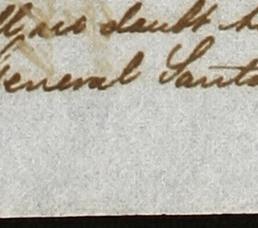 no doubt
General Santa